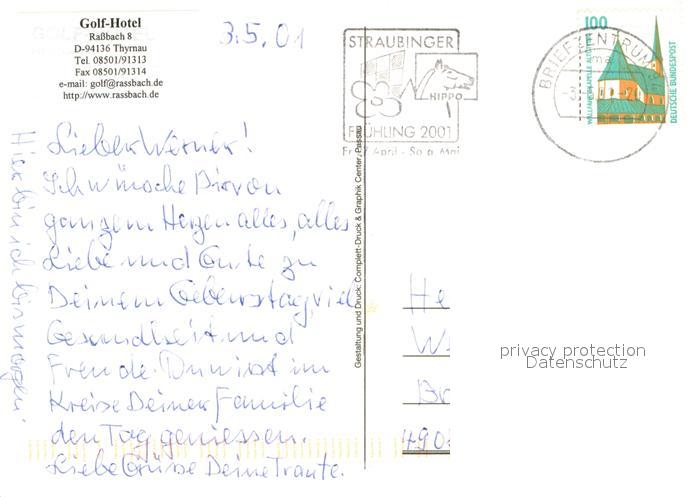 Golf-Hotel
Raßbach 8
D-94136 Thyrnau
Tel. 08501/91313
Fax 08501/91314
e-mail: golf@rassbach.de
http://www.rassbach.de
3.5.01
STRAUBINGER
HIPPO
FRÜHLING 2001
April - So 6. Mai
BRIEFZENTRUM 94
100
WALLFAHRTSKAPELLE ALTÖTTING
DEUTSCHE BUNDESPOST
Lieber Werner!
Ich wünsche Dir von
ganzem Herzen alles, alles
Liebe und Gute zu
Deinem Geburtstag, viel
Gesundheit und
Freude. Du wirst im
Kreise Deiner Familie
den Tag geniessen.
Liebe Grüsse Deine Traute.
Hier bin ich bis morgen.
Gestaltung und Druck: Complett-Druck & Graphik Center, Passau
He
W
Br
490
privacy protection
Datenschutz